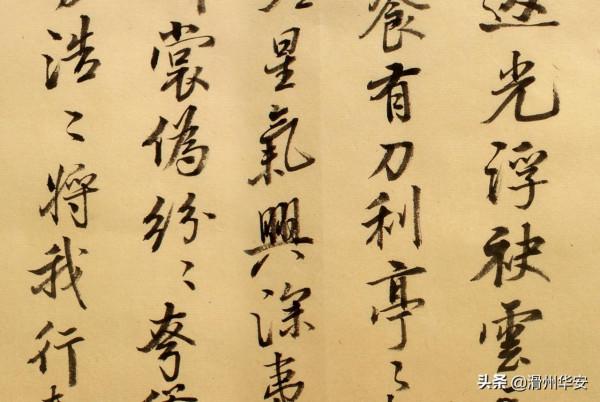 光浮袂雲
餐有刀利亭〻
星氣興深
裳偽紛〻夸
浩〻將我行
头条 @滑州华安